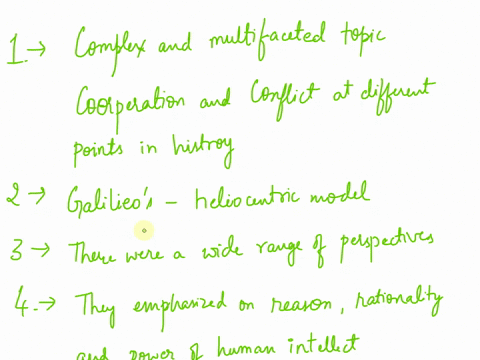 1.→ Complex and multifaceted topic
Coorperation and Conflict at different
points in histroy
2 → Galilieo's - heliocentric model
3 → There were a wide range of perspectives
4.→ They emphasized on reason, rationality
and power of human intellect